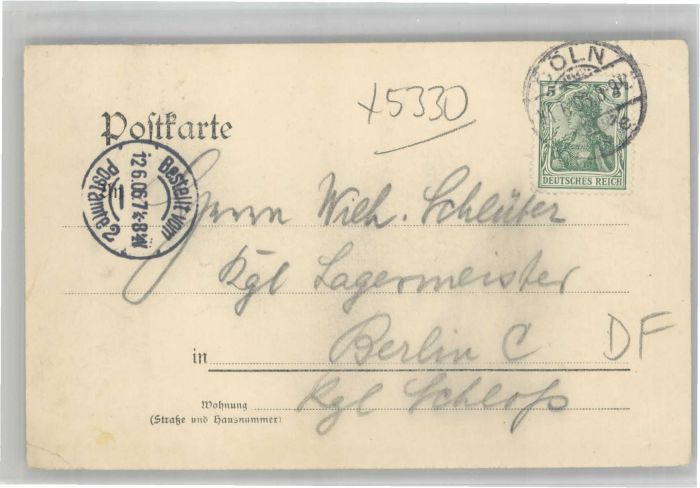 x5330
CÖLN
5 5
DEUTSCHES REICH
Postkarte
Bestellt vom
Postamte 2
12.6.06.7½-8½V
Herrn Wilh. Schlüter
Kgl Lagermeister
in Berlin C
DF
Wohnung Kgl Schloß
(Straße und Hausnummer)